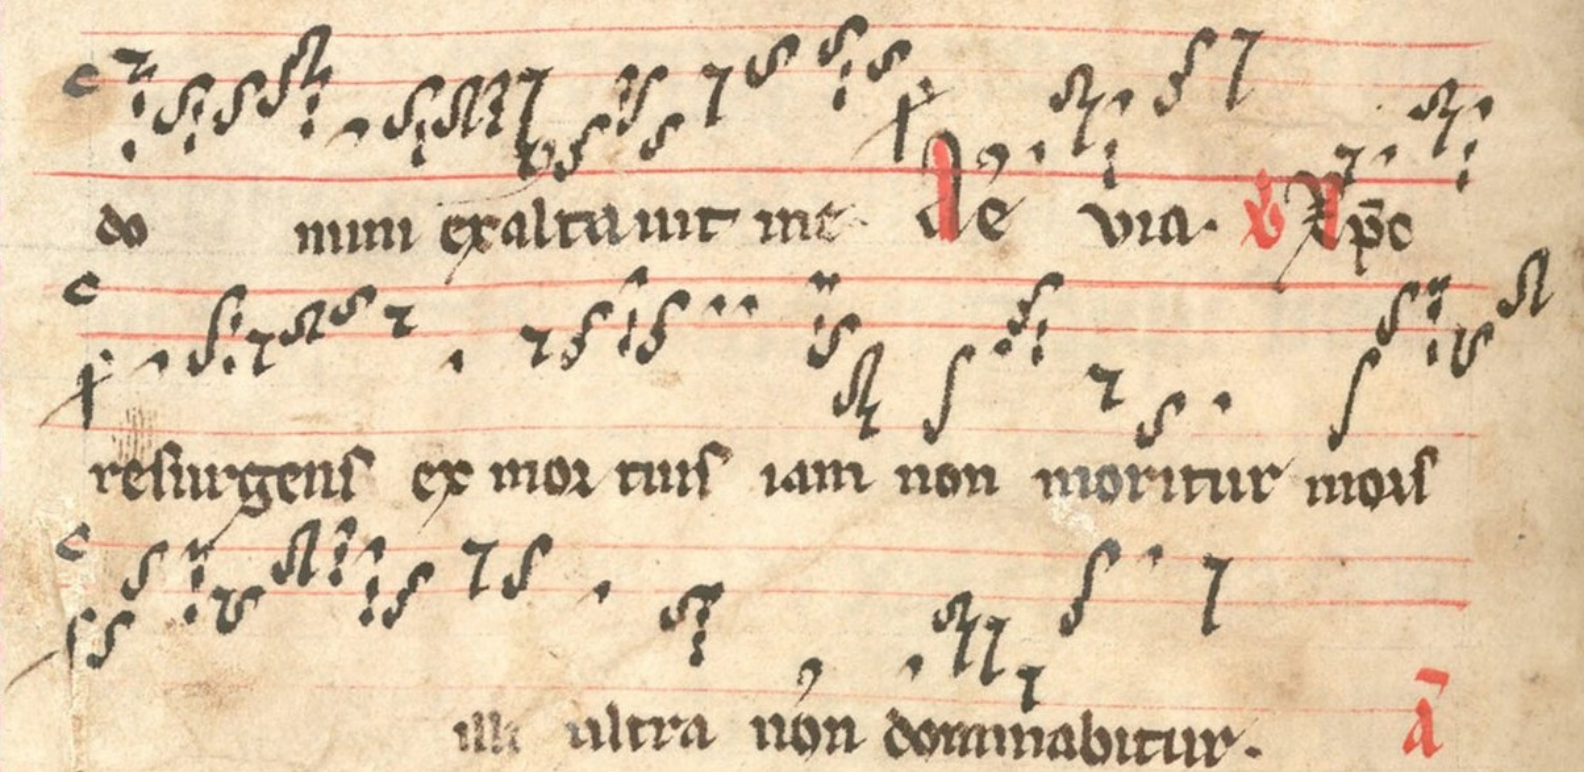 do mini exaltauit me Aeuia. V Xpc
resurgens ex mortuis iam non moritur mors
illi ultra non dominabitur. A